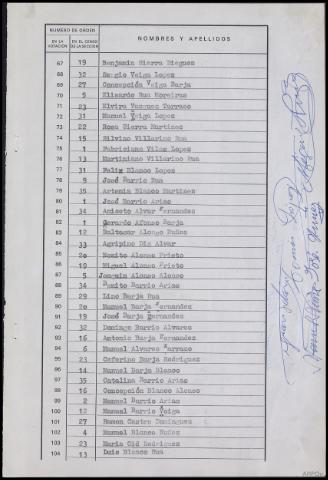 NUMERO DE ORDEN
NOMBRES Y APELLIDOS
EN LA VOTACION
EN EL CENSO DE LA SECCION
67 19 Benjamin Sierra Dieguez
68 32 Sergio Veiga Lopez
69 27 Concepción Veiga Barja
70 5 Elisardo Rua Moreiras
71 23 Elvira Vazquez Turraco
72 31 Manuel Veiga Lopez
73 22 Rosa Sierra Martinez
74 15 Silvino Villarino Rua
75 1 Fabriciano Vilas Lopez
76 13 Martiniano Villarino Rua
77 31 Felix Blanco Lopez
78 9 José Barrio Rua
79 35 Artemia Blanco Martinez
80 1 José Barrio Arias
81 34 Aniceto Alvar Fernandez
82 1 Gerardo Afonso Barja
83 12 Baltasar Alonso Nuñez
84 33 Agripino Diz Alvar
85 20 Benito Alonso Prieto
86 19 Miguel Alonso Prieto
87 5 Joaquin Alonso Alonso
88 34 Benito Barrio Arias
89 29 Lino Barja Rua
90 20 Manuel Barja Fernandez
91 19 José Barja Fernandez
92 32 Domingo Barrio Alvarez
93 16 Antonio Barja Fernandez
94 6 Manuel Alvarez Barraco
95 23 Ceferino Barja Rodriguez
96 14 Manuel Barja Blanco
97 35 Catalina Barrio Arias
98 16 Concepción Blanco Alonso
99 2 Manuel Barrio Arias
100 12 Manuel Barrio Veiga
101 27 Ramon Castro Dominguez
102 4 Manuel Blanco Nuñez
103 23 Maria Cid Rodriguez
104 13 Luis Blanco Rua